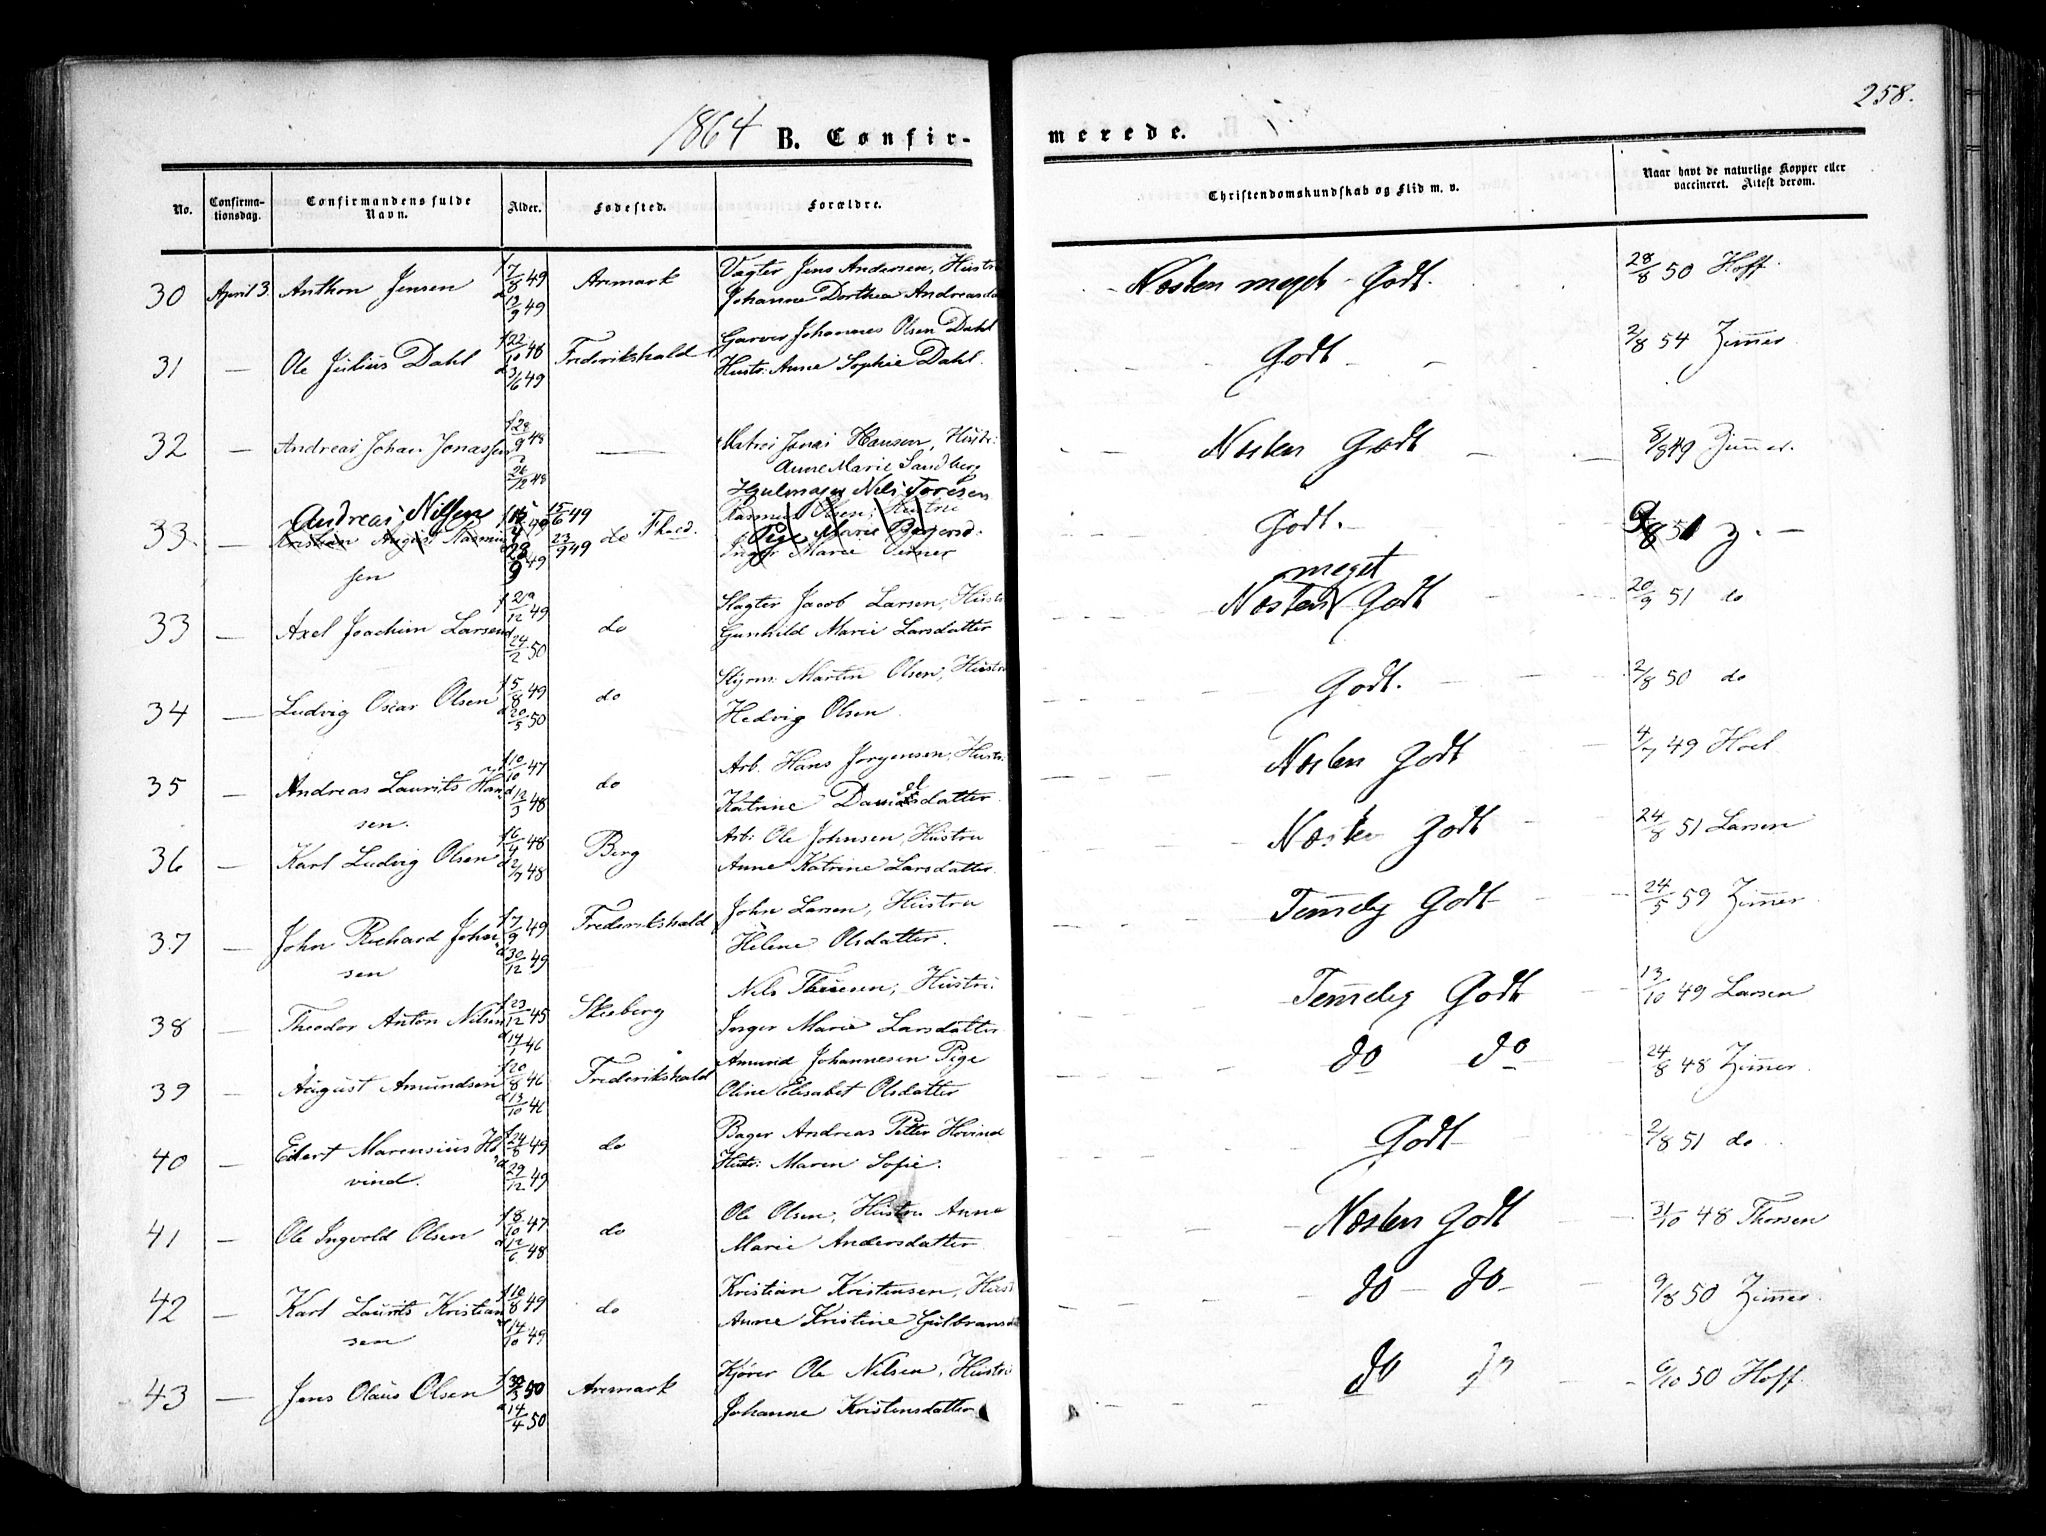 258.
1864 B. Confir- merede.
No.
Confirma-
tionsdag.
Confirmandens fulde
Navn.
Alder.
Fødested.
Forældre.
Christendomskundskab og Flid m. v.
Naar havt de naturlige Kopper eller
vaccineret. Attest derom.
30 April 3. Anthon Jensen f 7/8 49 d 13/9 49 Aremark Vagter Jens Andersen, Hustru
Johanne Dorthea Andreasd Næsten meget Godt. 28/8 50 Hoff.
31 — Ole Julius Dahl f 22/10 48 d 3/6 49 Frederikshald Garver Johannes Olsen Dahl
Hustr: Anne Sophie Dahl. Godt — 2/8 54 Zimmer
32 — Andreas Johan Jonassen 9 48 26/12 48 — Jonas Hansen, Hustr:
Anne Marie Sandberg Næsten Godt — 8/8 49 Zimmer.
33. Andreas Nilsen 15/6 49 23/9 49 do Fhald. Hjulmager Nils Toresen
Kristian August Rasmus
sen 49 23/9 49 Rasmus Olsen, Hustru
Pige Marie
Inger Marie Godt. 9/8 51 Z. —
33 — Axel Joachim Larsen f 29/12 49 d 24/2 50 do Slagter Jacob Larsen, Hustr
Gunhild Marie Larsdatter meget
Næsten Godt 20/9 51 do
34 — Ludvig Oscar Olsen f 5/8 49 d 20/5 50 do Styrm: Martin Olsen, Hustru
Hedvig Olsen Godt. 2/8 50 do
35 — Andreas Laurits Han
sen. f 10/10 47 d 12/3 48 do Arb. Hans Jørgensen, Hustr:
Katrine datter. Næsten Godt 4/7 49 Hoel
36 — Karl Ludvig Olsen f 6/4 48 d 2/7 48 Berg Arb: Ole Johnsen, Hustru
Anne Katrine Larsdatter. Næsten Godt 24/8 51 Larsen
37 — John Richard John
sen f 7/9 49 d 30/12 49 Frederikshald John Larsen, Hustru
Helene Olsdatter. Temmelig Godt 24/5 59 Zimmer
38 — Theodor Anton Nilsen f 23/12 45 d 14/1 46 Skeberg Nils , Hustru:
Inger Marie Larsdatter Temmelig Godt 13/10 49 Larsen
39 — August Amundsen f 20/8 46 d 13/10 46 Frederikshald Amund Johannesen Pige
Oline Elisabet Olsdatter do do 24/8 48 Zimmer.
40 — Edert Marensius Ho
vind. f 24/8 49 d 29/12 49 do Bager Andreas Petter Hovind
Hustr: Maren Sofie. Godt 2/8 51 do
41 — Ole Ingvold Olsen f 8/10 47 d 12/6 48 do Ole Olsen, Hustru Anne
Marie Andersdatter Næsten Godt 31/10 48 Thorsen
42 — Karl Laurits Kristian
sen f 10/8 49 d 14/10 49 do Kristian Kristensen, Hust
Anne Kristine Gulbransd do — do — 9/8 50 Zimmer.
43 — Jens Olaus Olsen 3 50 d 14/4 50 Aremark Kjører Ole Nilsen, Hustru
Johanne Kristensdatter do do 6/10 50 Hoff.